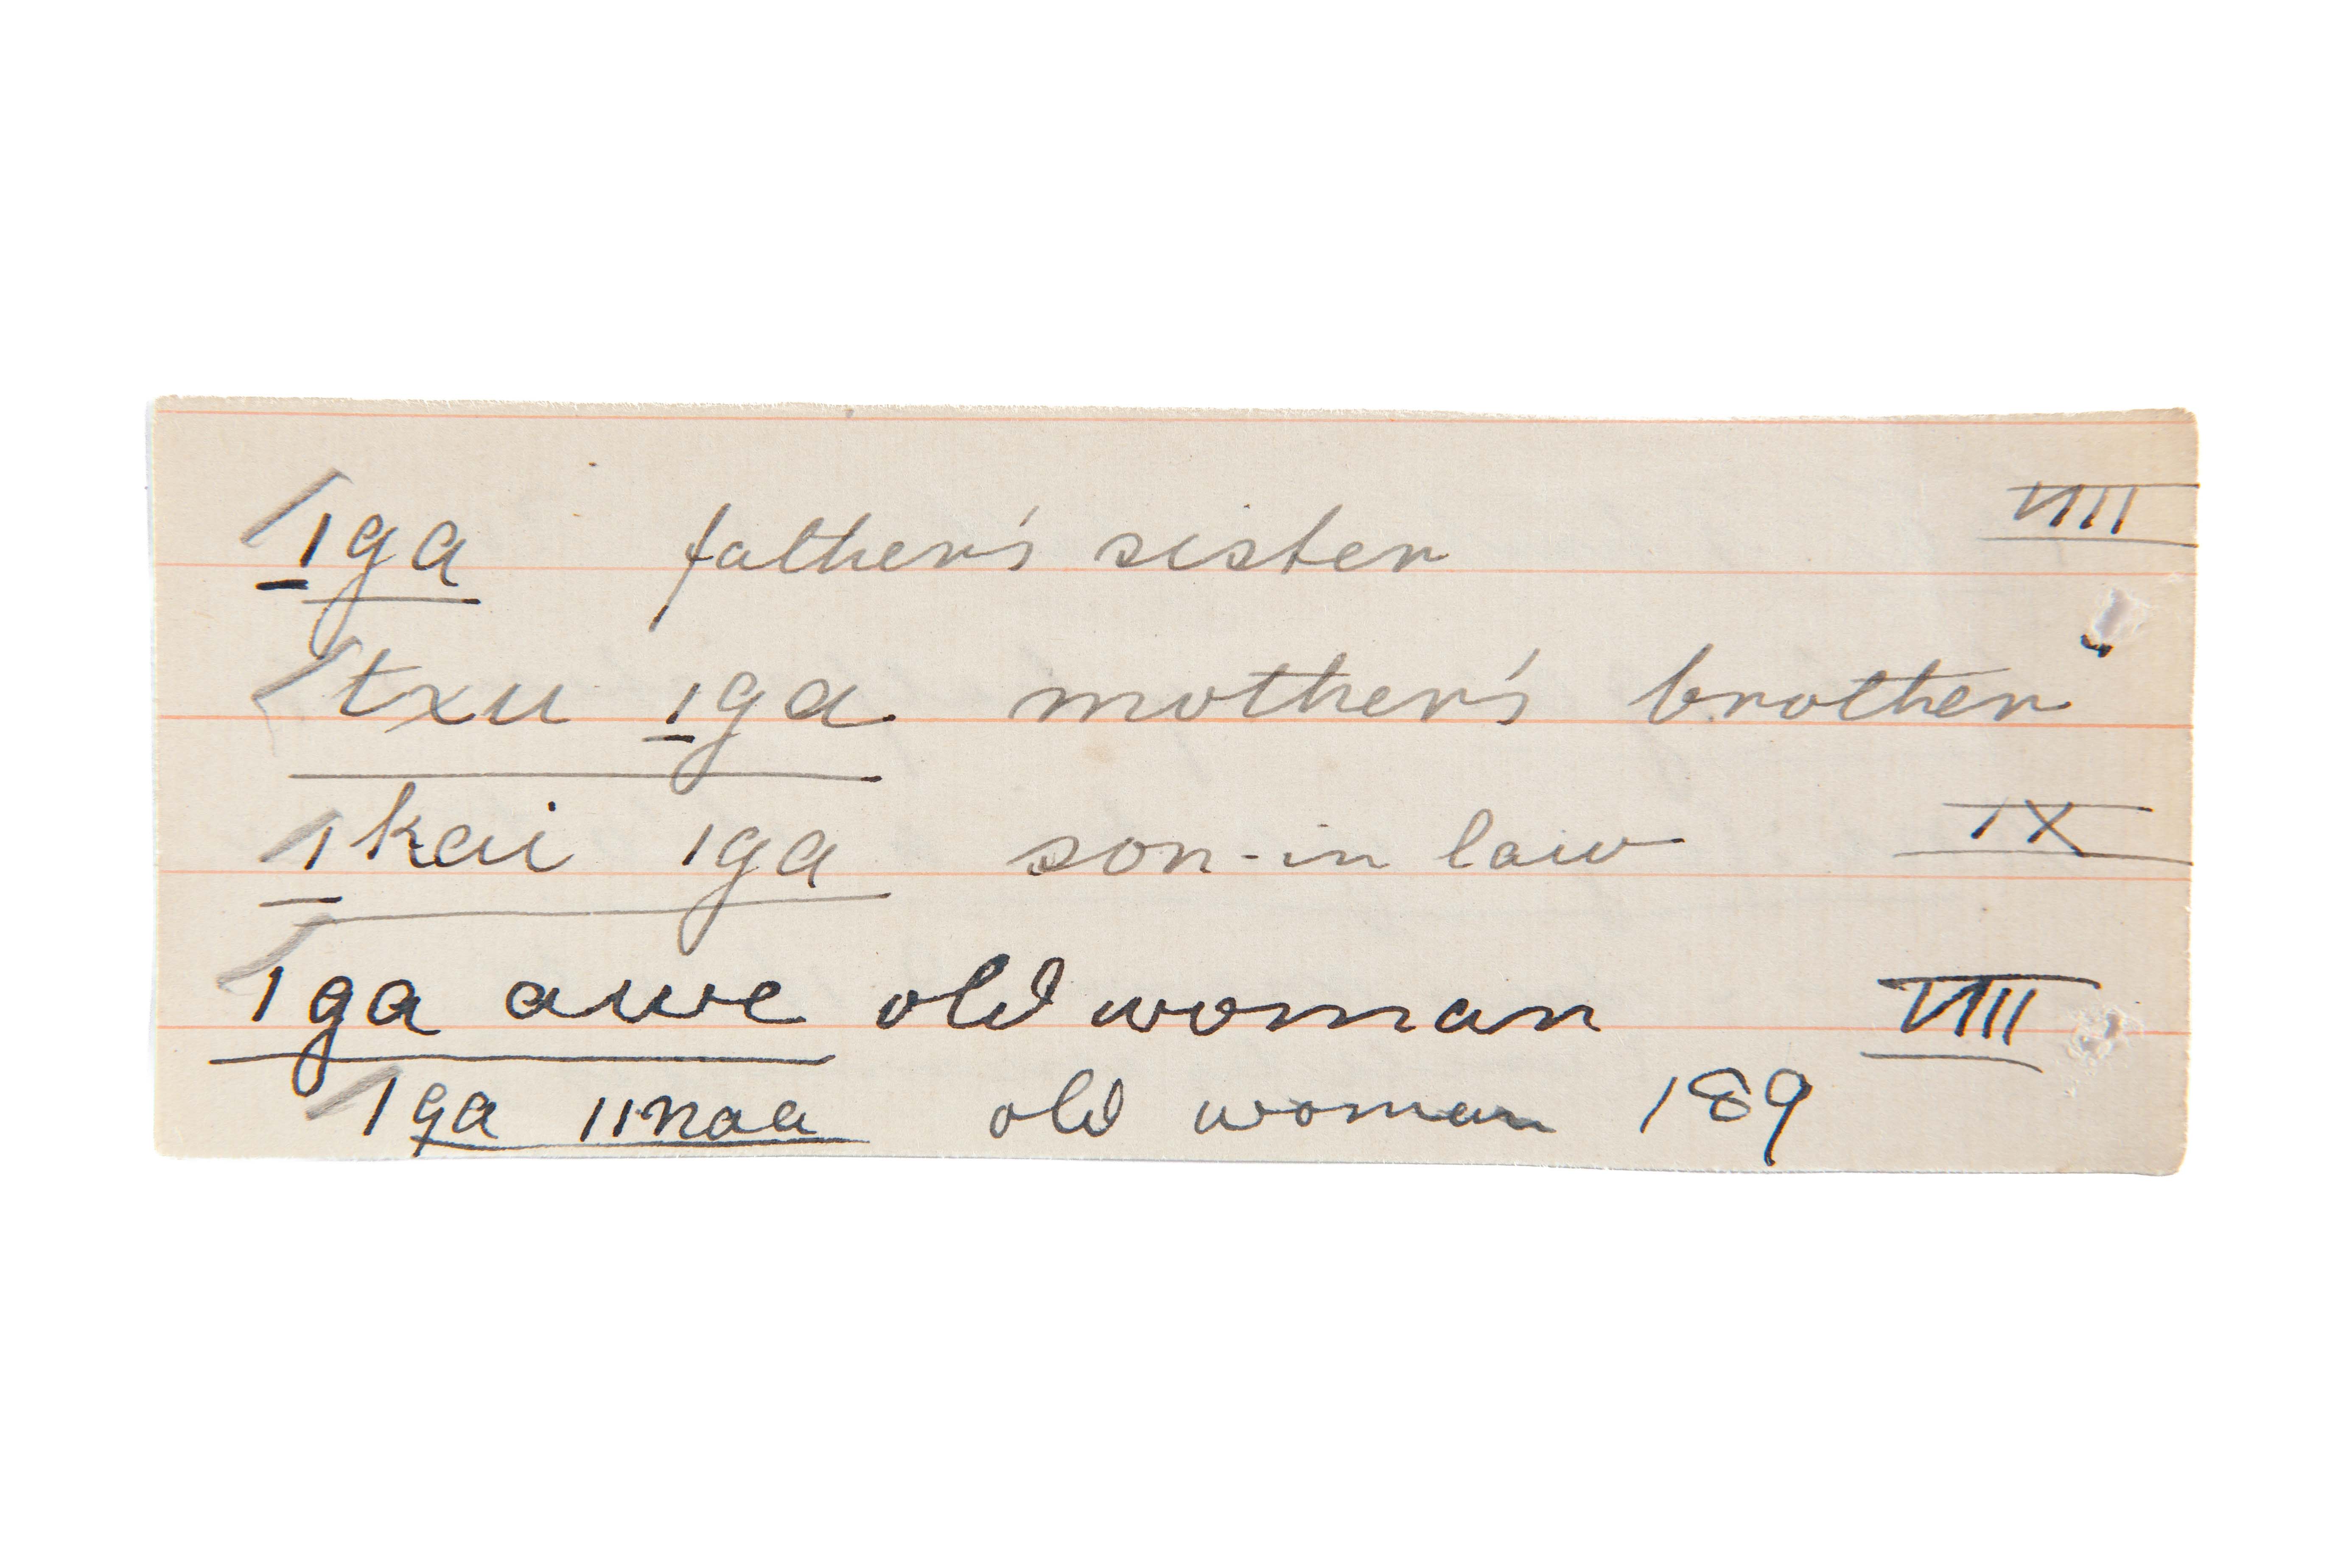 ıga father's sister VIII
txu ıga mother's brother
ıkai ıga son-in law IX
ıga awe old woman VIII
ıga ıınaa old woman 189